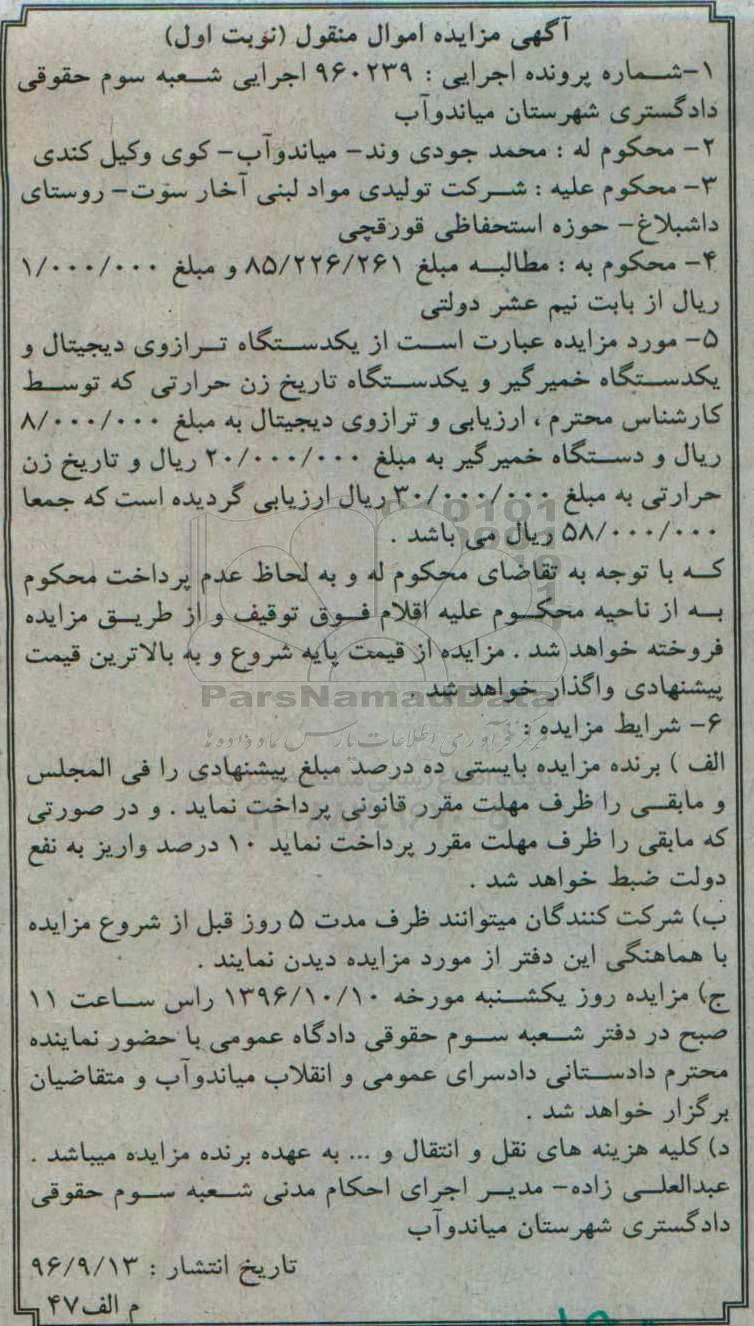 آگهی مزایده اموال منقول (نوبت اول)
۱-شماره پرونده اجرایی : ۹۶۰۲۳۹ اجرایی شعبه سوم حقوقی
دادگستری شهرستان میاندوآب
۲- محکوم له : محمد جودی وند- میاندوآب- کوی وکیل کندی
۳- محکوم علیه : شرکت تولیدی مواد لبنی آخار سوت- روستای
داشبلاغ- حوزه استحفاظی قورقچی
۴- محکوم به : مطالبه مبلغ ۸۵/۲۲۶/۲۶۱ و مبلغ ۱/۰۰۰/۰۰۰
ریال از بابت نیم عشر دولتی
۵- مورد مزایده عبارت است از یکدستگاه ترازوی دیجیتال و
یکدستگاه خمیرگیر و یکدستگاه تاریخ زن حرارتی که توسط
کارشناس محترم ، ارزیابی و ترازوی دیجیتال به مبلغ ۸/۰۰۰/۰۰۰
ریال و دستگاه خمیرگیر به مبلغ ۲۰/۰۰۰/۰۰۰ ریال و تاریخ زن
حرارتی به مبلغ ۳۰/۰۰۰/۰۰۰ ریال ارزیابی گردیده است که جمعا
۵۸/۰۰۰/۰۰۰ ریال می باشد .
که با توجه به تقاضای محکوم له و به لحاظ عدم پرداخت محکوم
به از ناحیه محکوم علیه اقلام فوق توقیف و از طریق مزایده
فروخته خواهد شد . مزایده از قیمت پایه شروع و به بالاترین قیمت
پیشنهادی واگذار خواهد شد .
ParsNamadData
۶- شرایط مزایده :
الف ) برنده مزایده بایستی ده درصد مبلغ پیشنهادی را فی المجلس
و مابقی را ظرف مهلت مقرر قانونی پرداخت نماید . و در صورتی
که مابقی را ظرف مهلت مقرر پرداخت نماید ۱۰ درصد واریز به نفع
دولت ضبط خواهد شد .
ب) شرکت کنندگان میتوانند ظرف مدت ۵ روز قبل از شروع مزایده
با هماهنگی این دفتر از مورد مزایده دیدن نمایند .
ج) مزایده روز یکشنبه مورخه ۱۳۹۶/۱۰/۱۰ راس ساعت ۱۱
صبح در دفتر شعبه سوم حقوقی دادگاه عمومی با حضور نماینده
محترم دادستانی دادسرای عمومی و انقلاب میاندوآب و متقاضیان
برگزار خواهد شد .
د) کلیه هزینه های نقل و انتقال و ... به عهده برنده مزایده میباشد .
عبدالعلی زاده- مدیر اجرای احکام مدنی شعبه سوم حقوقی
دادگستری شهرستان میاندوآب
تاریخ انتشار : ۹۶/۹/۱۳
م الف ۴۷